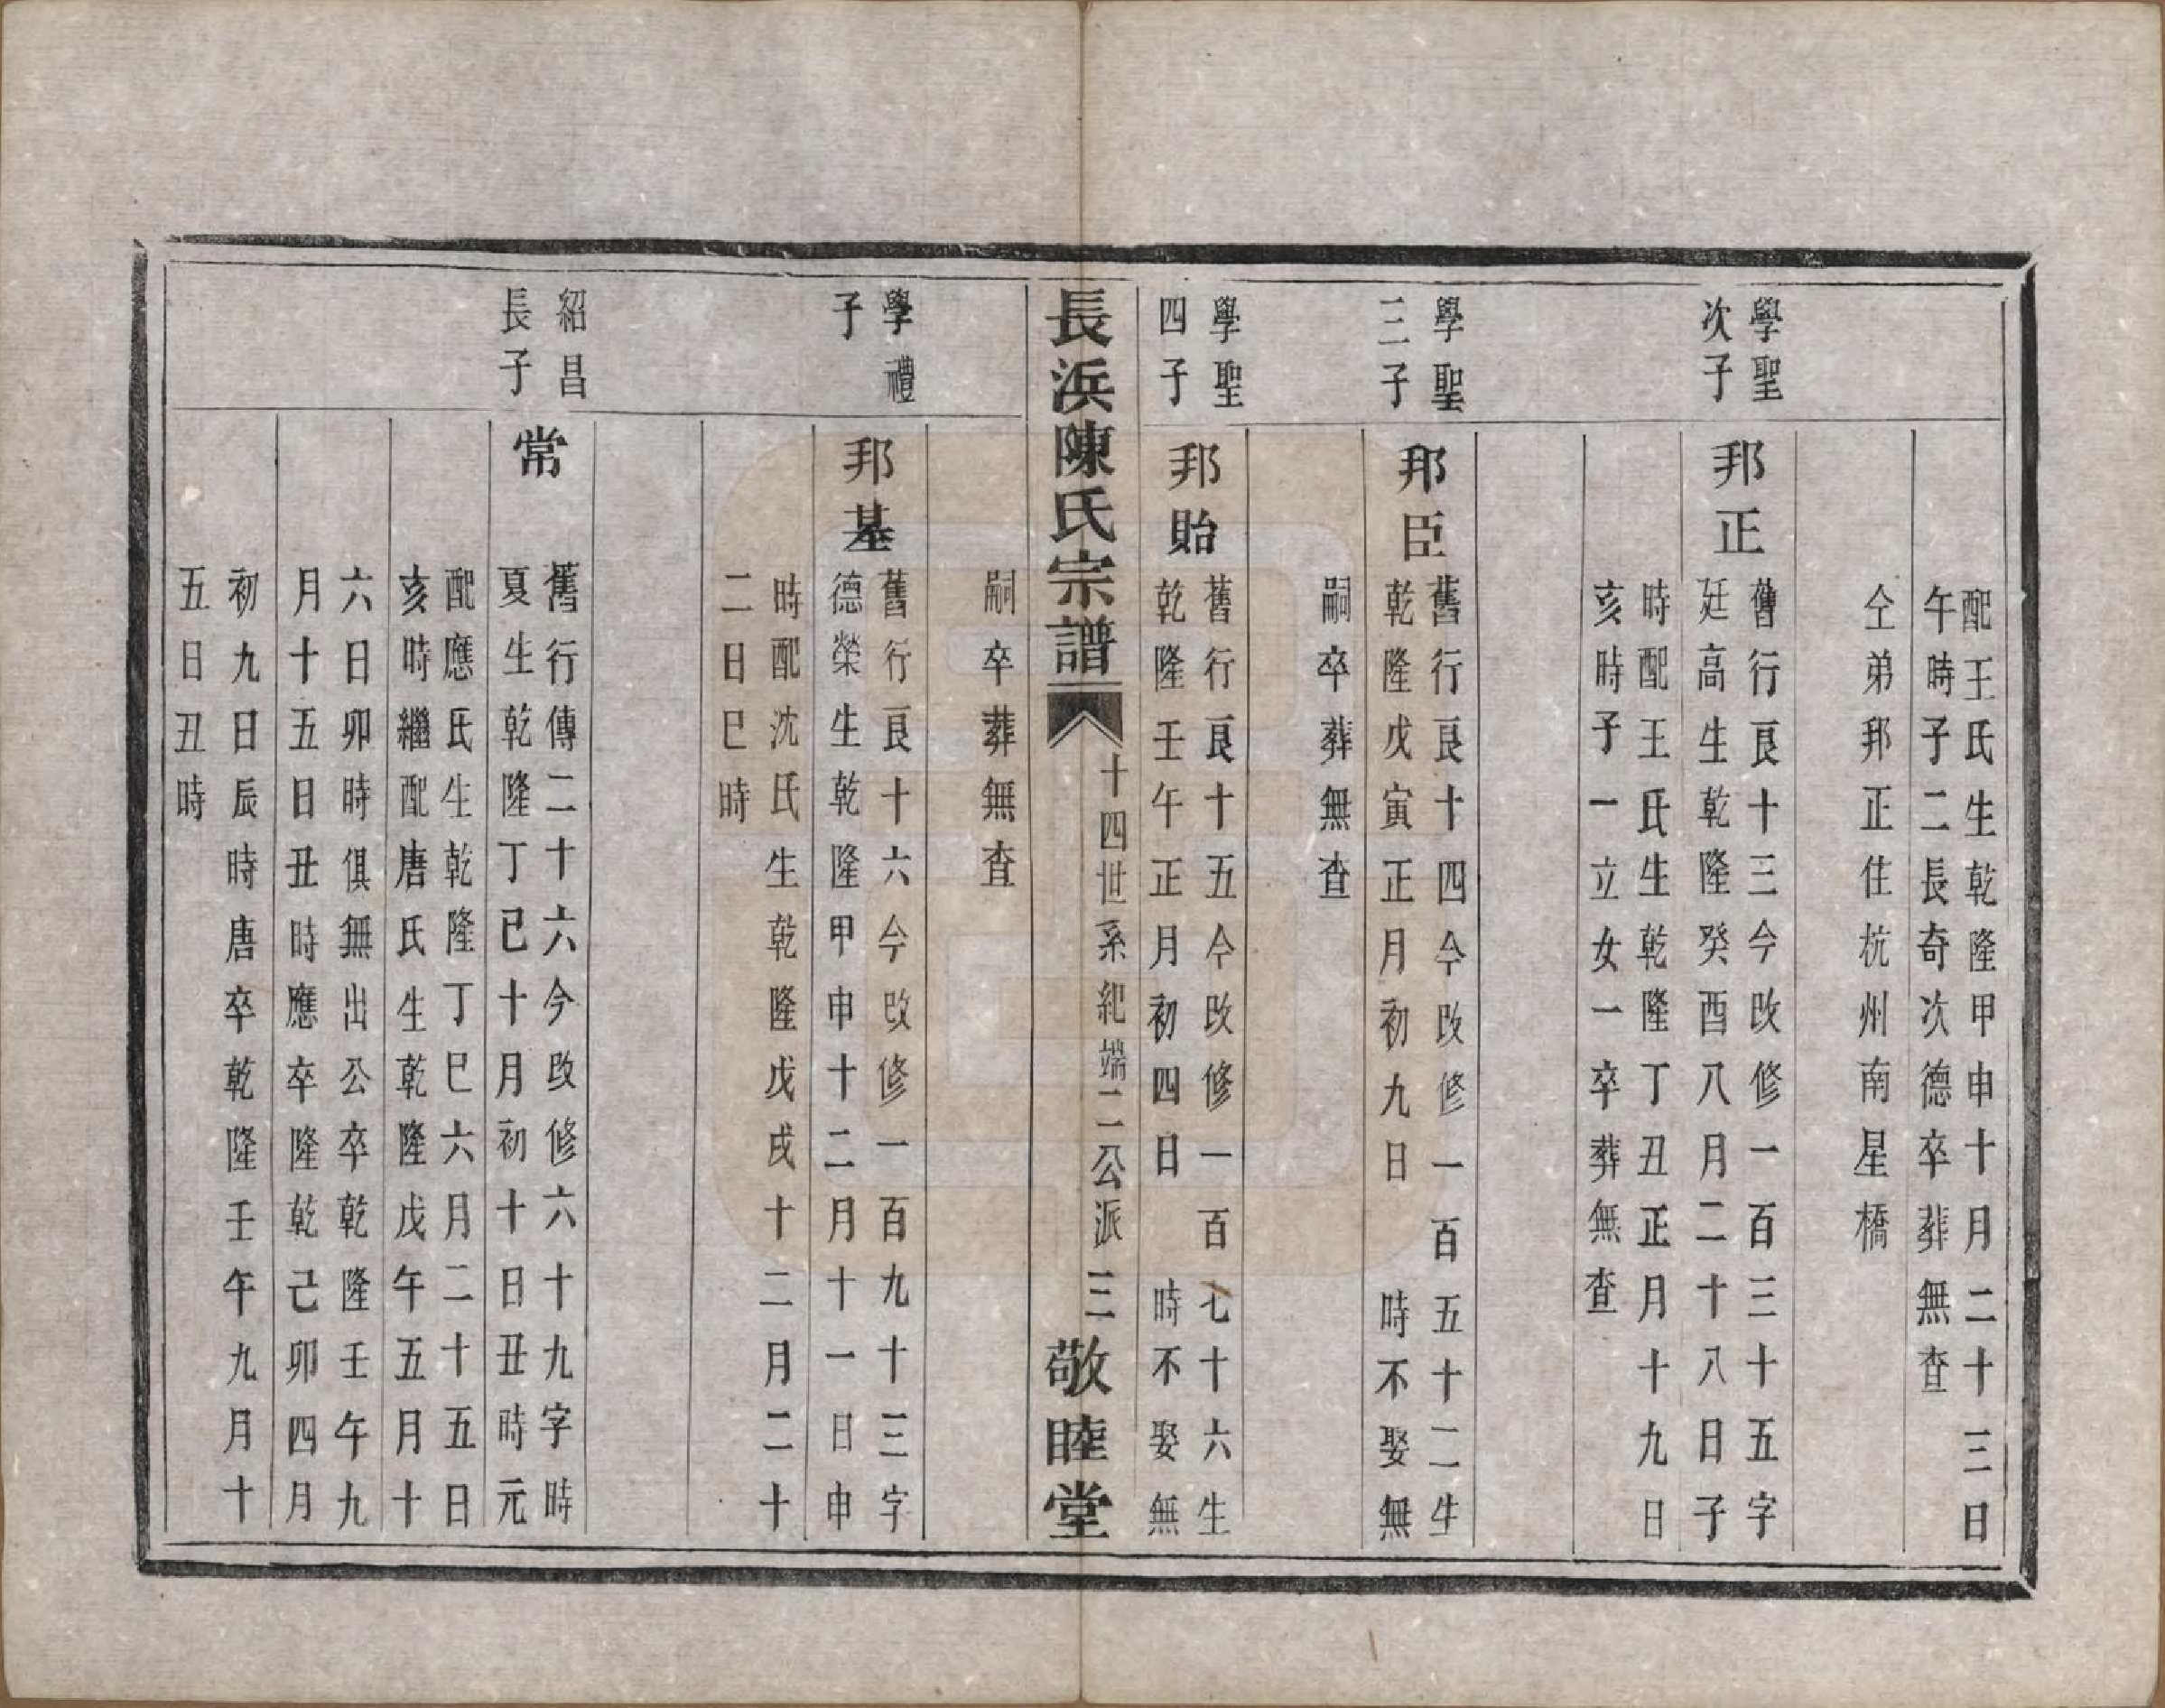 配王氏生乾隆甲申十月二十三日
午時子二長奇次德卒葬無查
仝弟邦正住杭州南星橋
學聖
次子
邦正
舊行良十三今改修一百三十五字
廷高生乾隆癸酉八月二十八日子
時配王氏生乾隆丁丑正月十九日
亥時子一立女一卒葬無查
學聖
三子
邦臣
舊行良十四今改修一百五十二生
乾隆戊寅正月初九日　時不娶無
嗣卒葬無查
學聖
四子
邦貽
舊行良十五今改修一百七十六生
乾隆壬午正月初四日　時不娶無
嗣卒葬無查
長浜陳氏宗譜
十四世系紀端二公派　三
敬睦堂
學禮
子
邦基
舊行良十六今改修一百九十三字
德榮生乾隆甲申十二月十一日申
時配沈氏生乾隆戊戌十二月二十
二日巳時
紹昌
長子
常
舊行傳二十六今改修六十九字時
夏生乾隆丁巳十月初十日丑時元
配應氏生乾隆丁巳六月二十五日
亥時繼配唐氏生乾隆戊午五月十
六日卯時俱無出公卒乾隆壬午九
月十五日丑時應卒隆乾己卯四月
初九日辰時唐卒乾隆壬午九月十
五日丑時